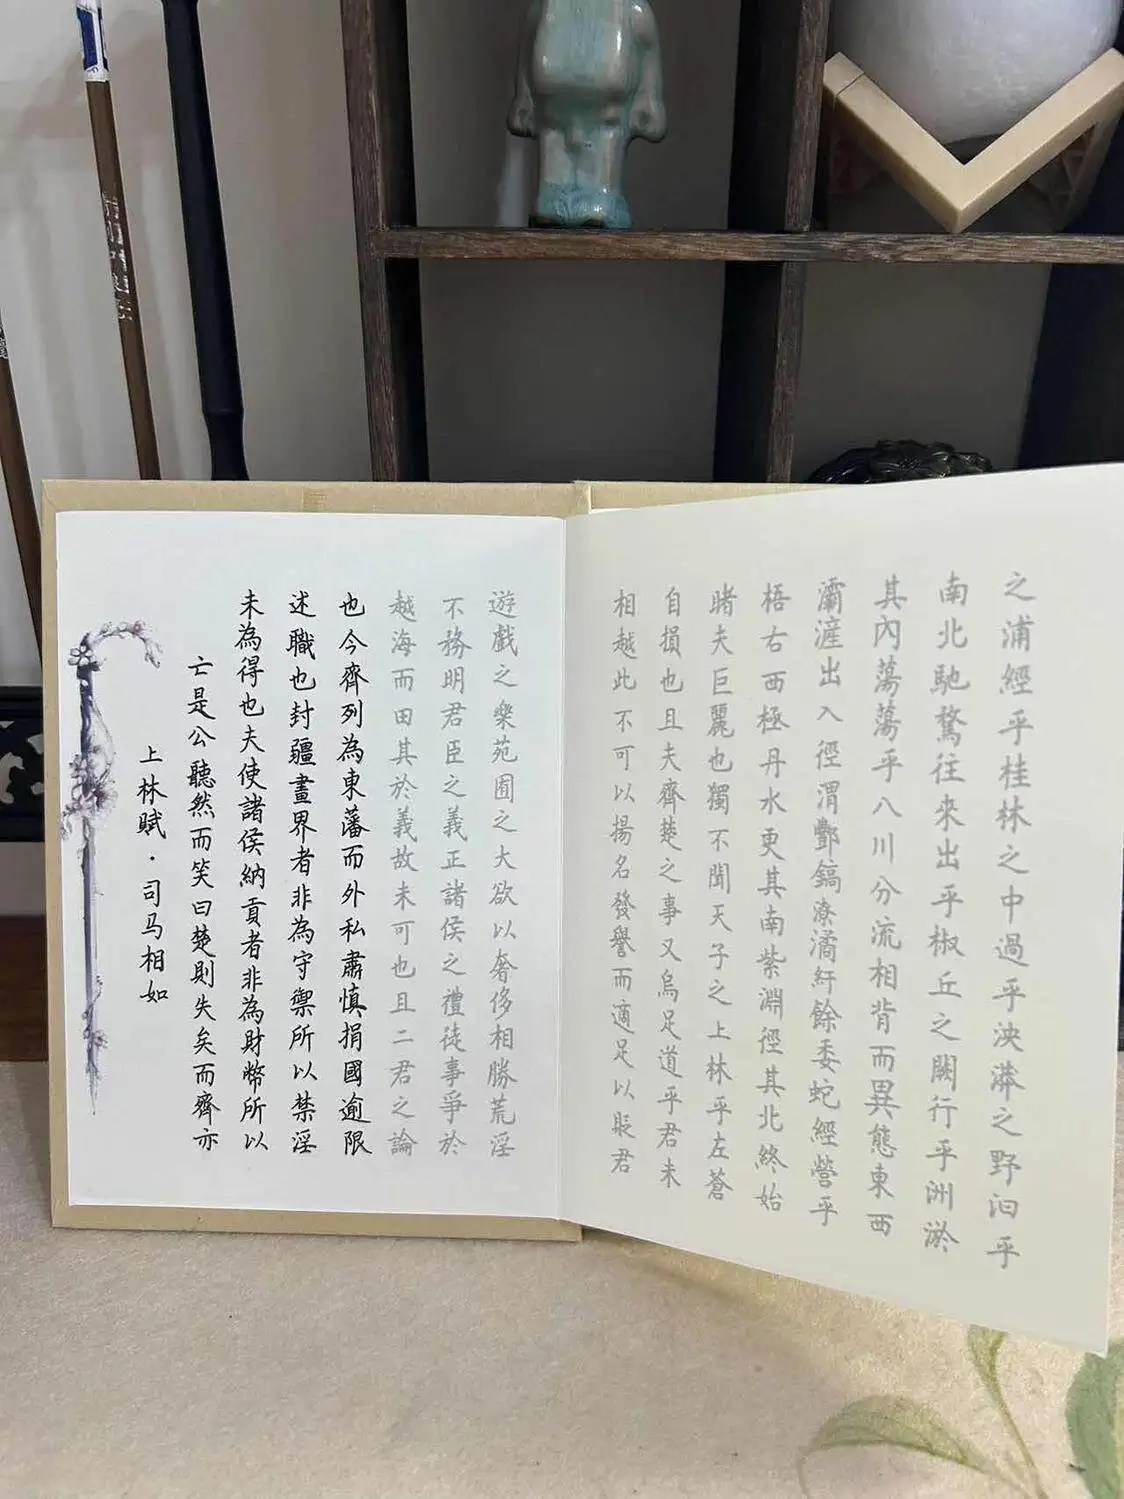 上林賦·司马相如
亡是公聽然而笑曰楚則失矣而齊亦
未為得也夫使諸侯納貢者非為財幣所以
述職也封疆畫界者非為守禦所以禁淫
也今齊列為東藩而外私肅慎捐國逾限
越海而田其於義故未可也且二君之論
不務明君臣之義正諸侯之禮徒事爭於
遊戲之樂苑囿之大欲以奢侈相勝荒淫
相越此不可以揚名發譽而適足以貶君
自損也且夫齊楚之事又烏足道乎君未
睹夫巨麗也獨不聞天子之上林乎左蒼
梧右西極丹水更其南紫淵徑其北終始
灞滻出入徑渭酆鎬潦潏紆餘委蛇經營乎
其內蕩蕩乎八川分流相背而異態東西
南北馳騖往來出乎椒丘之闕行乎洲淤
之浦經乎桂林之中過乎泱漭之野汩乎